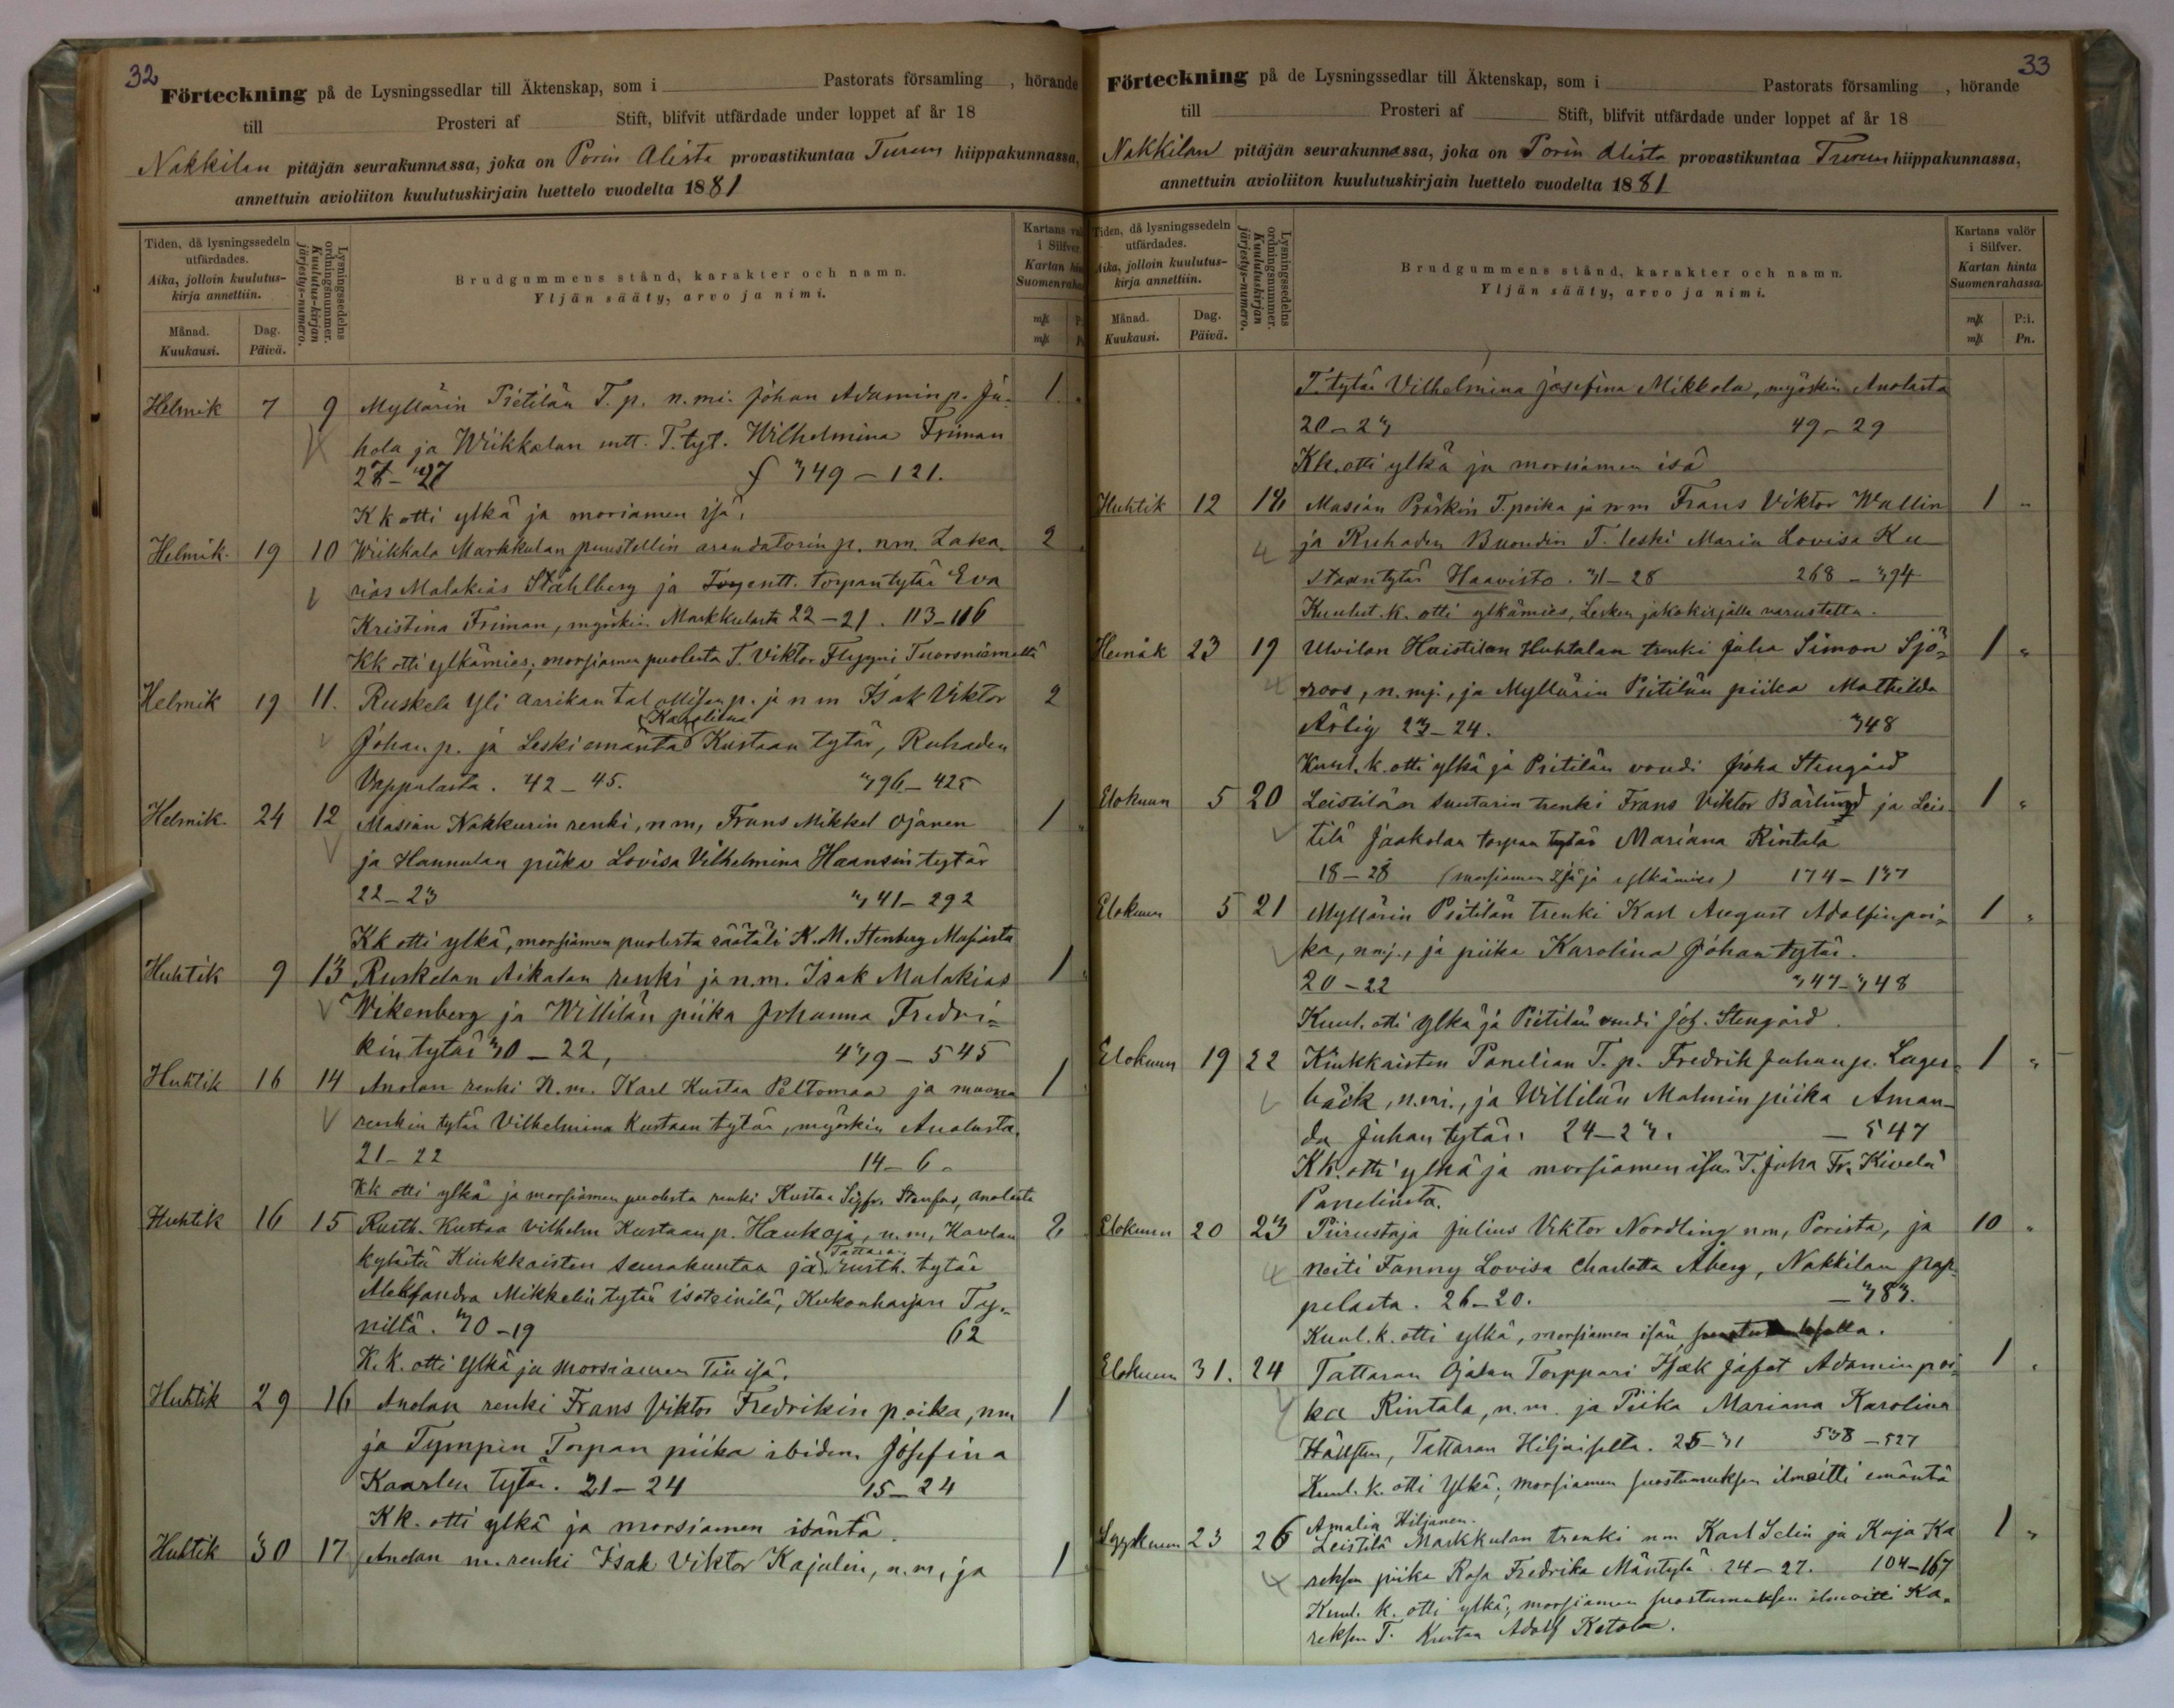 32
Förteckning på de Lysningssedlar till Äktenskap, som i Pastorats församling , hörande
till Prosteri af Stift, blifvit utfärdade under loppet af år 18
Nakkilan pitäjän seurakunnassa, joka on Porin Alista provastikuntaa Turun hiippakunnassa,
annettuin avioliiton kuulutuskirjain luettelo vuodelta 1881
Tiden, då lysningssedeln utfärdades.
Aika, jolloin kuulutus-kirja annettiin.
Månad. Kuukausi.
Dag. Päivä.
Lysningssedelns ordningsnummer.
Kuulutus-kirjan järjestys-numero.
Brudgummens stånd, karakter och namn.
Yljän sääty, arvo ja nimi.
Kartans
i Silfver
Kartan
Suomenraha
Helmik 7 9 Myllärin Pietilän T. p. n. mi. Johan Adamin p. Ju- 1
hola ja Wiikkalan T. tyt. Wilhelmina Friman
349 - 121.
Kk otti ylkä ja moriamen isä.
Helmik. 19 10 Wiikkala Markkulan puustellin arendatorin p. nm. Zaka- 2
rias Malakias Ståhlberg ja entt. torpantytär Eva
Kristina Friman, myöskin Markkulasta 22 - 21. 113 - 116
Kk otti ylkämies, morsiamen puolesta T. Viktor
Helmik 19 11. Ruskela Yli Aarikan tal p. ja n m Isak Viktor 2
Karolina
Johan p. ja Leskiemäntä Kustaan tytär, Ruhaden
42 - 45. 396 - 425
Helmik. 24 12 Masian Nakkurin renki, n m, Frans Mikkel Ojanen 1
ja Hannulan piika Lovisa Vilhelmina Haansin tytär
22 - 23 341 - 292
Kk otti ylkä, morsiamen puolesta räätäli K. M. Stenberg Masiasta
Huhtik 9 13 Ruskelan Aikalan renki ja n.m. Isak Malakias 1
Wikenberg ja Willilän piika Johanna Fredri-
kin tytär 30 - 22, 439 - 545
Huhtik 16 14 Anolan renki N. m. Karl Kustaa Peltomaa ja muona 1
renkin tytär Vilhelmina Kustaan tytär, myöskin Anolasta.
21 - 22 14 - 6
Kk otti ylkä ja morsiamen puolesta renki Kustaa Anolasta
Huhtik 16 15 Rusth. Kustaa Vilhelm Kustaan p. Haukoja, n. m. 2
Tattara
kylästä Kiukkaisten seurakuntaa ja rusth. tytär
Aleksandra Mikkelin tytär
30 - 19 62
K. K. otti ylkä ja morsiamen isä.
Huhtik 29 16 Anolan renki Frans Viktor Fredrikin poika, nm 1
ja Tympin Torpan piika ibidem Josefina
Kaarlen tytär. 21 - 24 15 - 24
Kk. otti ylkä ja morsiamen isäntä.
Huhtik 30 17 Anolan m. renki Isak Viktor Kajalin, n. m, ja 1
33
Förteckning på de Lysningssedlar till Äktenskap, som i Pastorats församling , hörande
till Prosteri af Stift, blifvit utfärdade under loppet af år 18
Nakkilan pitäjän seurakunnassa, joka on Porin Alista provastikuntaa Turun hiippakunnassa,
annettuin avioliiton kuulutuskirjain luettelo vuodelta 1881
Tiden, då lysningssedeln utfärdades.
Aika, jolloin kuulutus-kirja annettiin.
Månad. Kuukausi.
Dag. Päivä.
Lysningssedelns ordningsnummer.
Kuulutuskirjan järjestys-numero.
Brudgummens stånd, karakter och namn.
Yljän sääty, arvo ja nimi.
Kartans valör i Silfver.
Kartan hinta Suomenrahassa
mk P:i.
mk Pn.
T. tytär Vilhelmina Josefina Mikkola, myöskin Anolasta
20 - 23 49 - 29
Kk. otti ylkä ja morsiamen isä
Huhtik 12 18 Masian Präskin T. poika ja n m Frans Viktor Wallin 1 "
ja Ruhaden Buondin T. leski Maria Lovisa Ku
staantytär Haavisto. 31 - 28 268 - 394
Kuulut. k. otti ylkämies, Lesken jakokirjalla varustettu.
Heinäk 23 19 Ulvilan Haistilan Huhtalan trenki Juha Simon Sjö- 1 "
roos, n. mj., ja Myllärin Pietilän piika Mathilda
Ärlig 23 - 24. 348
Kuul. k. otti ylkä ja Pietilän voudi Juha Stengård
Elokuun 5 20 Leistilän Suutarin trenki Frans Viktor Bärlund ja Leis- 1 "
tilä Jaakolan torpan tytär Mariana Rintala
18 - 28 (morsiamen isä ja ylkämies) 174 - 137
Elokuun 5 21 Myllärin Pietilän trenki Karl August Adolfin poi- 1 "
ka, nmj., ja piika Karolina Johan tytär.
20 - 22 347 - 348
Kuul. otti ylkä ja Pietilän voudi Joh. Stengård.
Elokuun 19 22 Kiukkaisten Panelian T. p. Fredrik Juhan p. Lager- 1 "
bäck, n. mi., ja Willilän Malmin piika Aman-
da Juhan tytär. 24 - 23. - 547
Kk. otti ylkä ja morsiamen isä T. Juha Fr. Kivelä
Paneliasta.
Elokuun 20 23 Piirustaja Julius Viktor Nordling nm, Porista, ja 10 "
neiti Fanny Lovisa Charlotta Åberg, Nakkilan pap-
pilasta. 26 - 20. - 383.
Kuul. k. otti ylkä, morsiamen isän
Elokuun 31. 24 Tattaran Ojalan Torppari Isak Jafet Adamin poi- 1 "
ka Rintala, n. m. ja Piika Mariana Karolina
Tattaran 25 - 31 538 - 527
Kuul. k. otti Ylkä; morsiamen suostumuksen ilmoitti emäntä
Amalia Hiljanen.
Syyskuun 23 26 Leistilä Markkulan trenki nm Karl Selin ja Kaja Ka 1 "
reksen piika Rosa Fredrika Mäntylä 24 - 27. 104 - 167
Kuul. k. otti ylkä; morsiamen suostumuksen ilmoitti Ka-
reksen T. Kustaa Adolf Ketola.